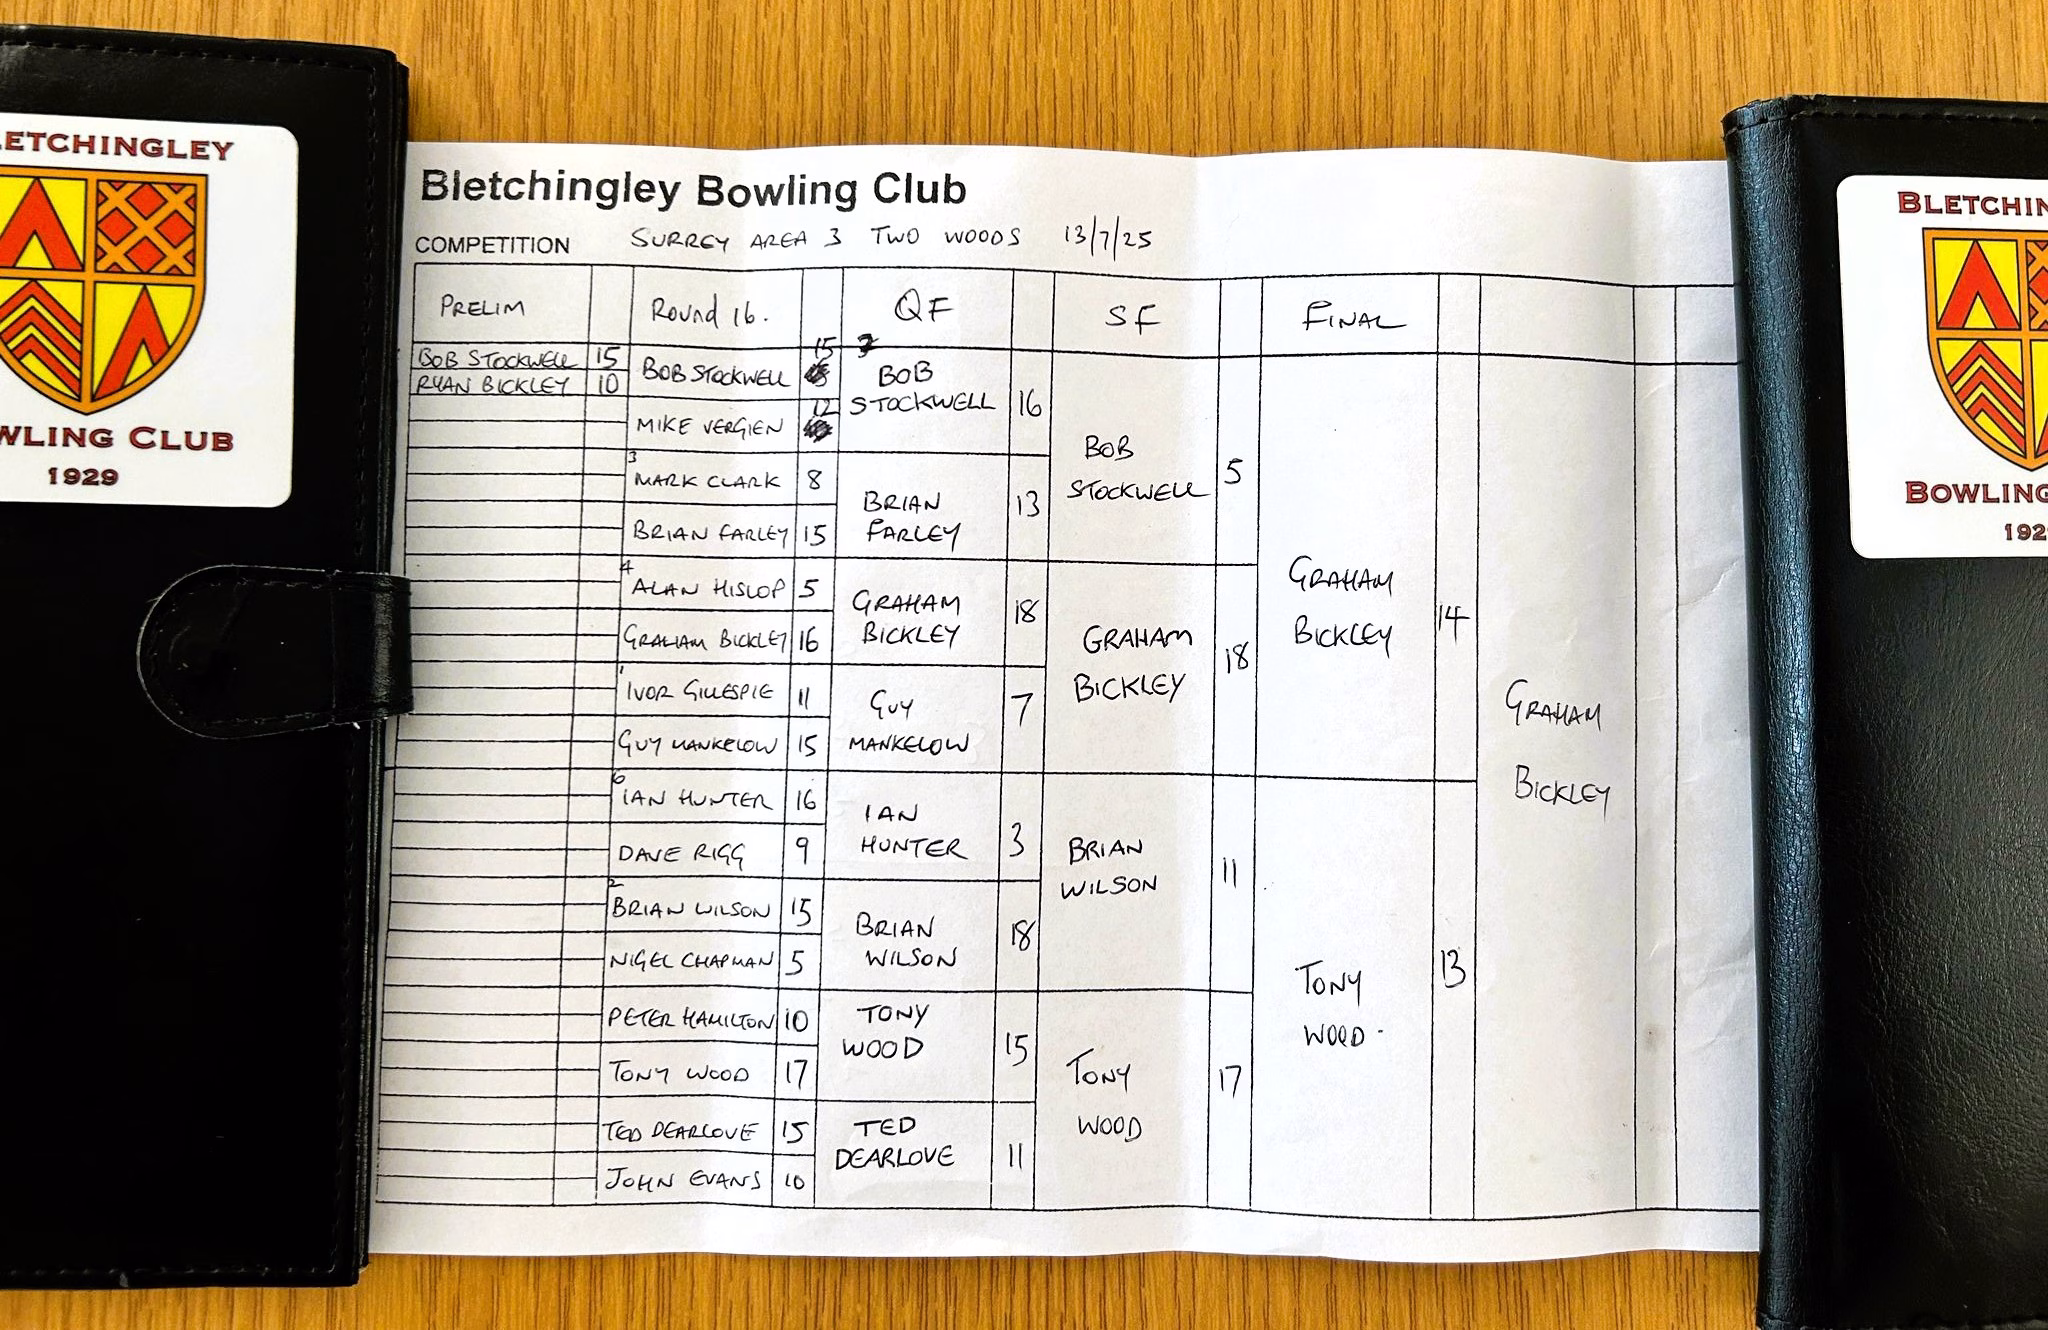 LETCHINGLEY
WLING CLUB
1929
BLETCHIN
BOWLING
192
Bletchingley Bowling Club
COMPETITION SURREY AREA 3 TWO WOODS 13/7/25
PRELIM Round 16. QF SF FINAL
BOB STOCKWELL 15
RYAN BICKLEY 10
BOB STOCKWELL 15
MIKE VERGIEN 12
3
MARK CLARK 8
BRIAN FARLEY 15
4
ALAN HISLOP 5
GRAHAM BICKLEY 16
1
IVOR GILLESPIE 11
GUY MANKELOW 15
6
IAN HUNTER 16
DAVE RIGG 9
2
BRIAN WILSON 15
NIGEL CHAPMAN 5
PETER HAMILTON 10
TONY WOOD 17
TED DEARLOVE 15
JOHN EVANS 10
BOB
STOCKWELL 16
BRIAN
FARLEY 13
GRAHAM
BICKLEY 18
GUY
MANKELOW 7
IAN
HUNTER 3
BRIAN
WILSON 18
TONY
WOOD 15
TED
DEARLOVE 11
BOB
STOCKWELL 5
GRAHAM
BICKLEY 18
BRIAN
WILSON 11
TONY
WOOD 17
GRAHAM
BICKLEY 14
TONY
WOOD 13
GRAHAM
BICKLEY